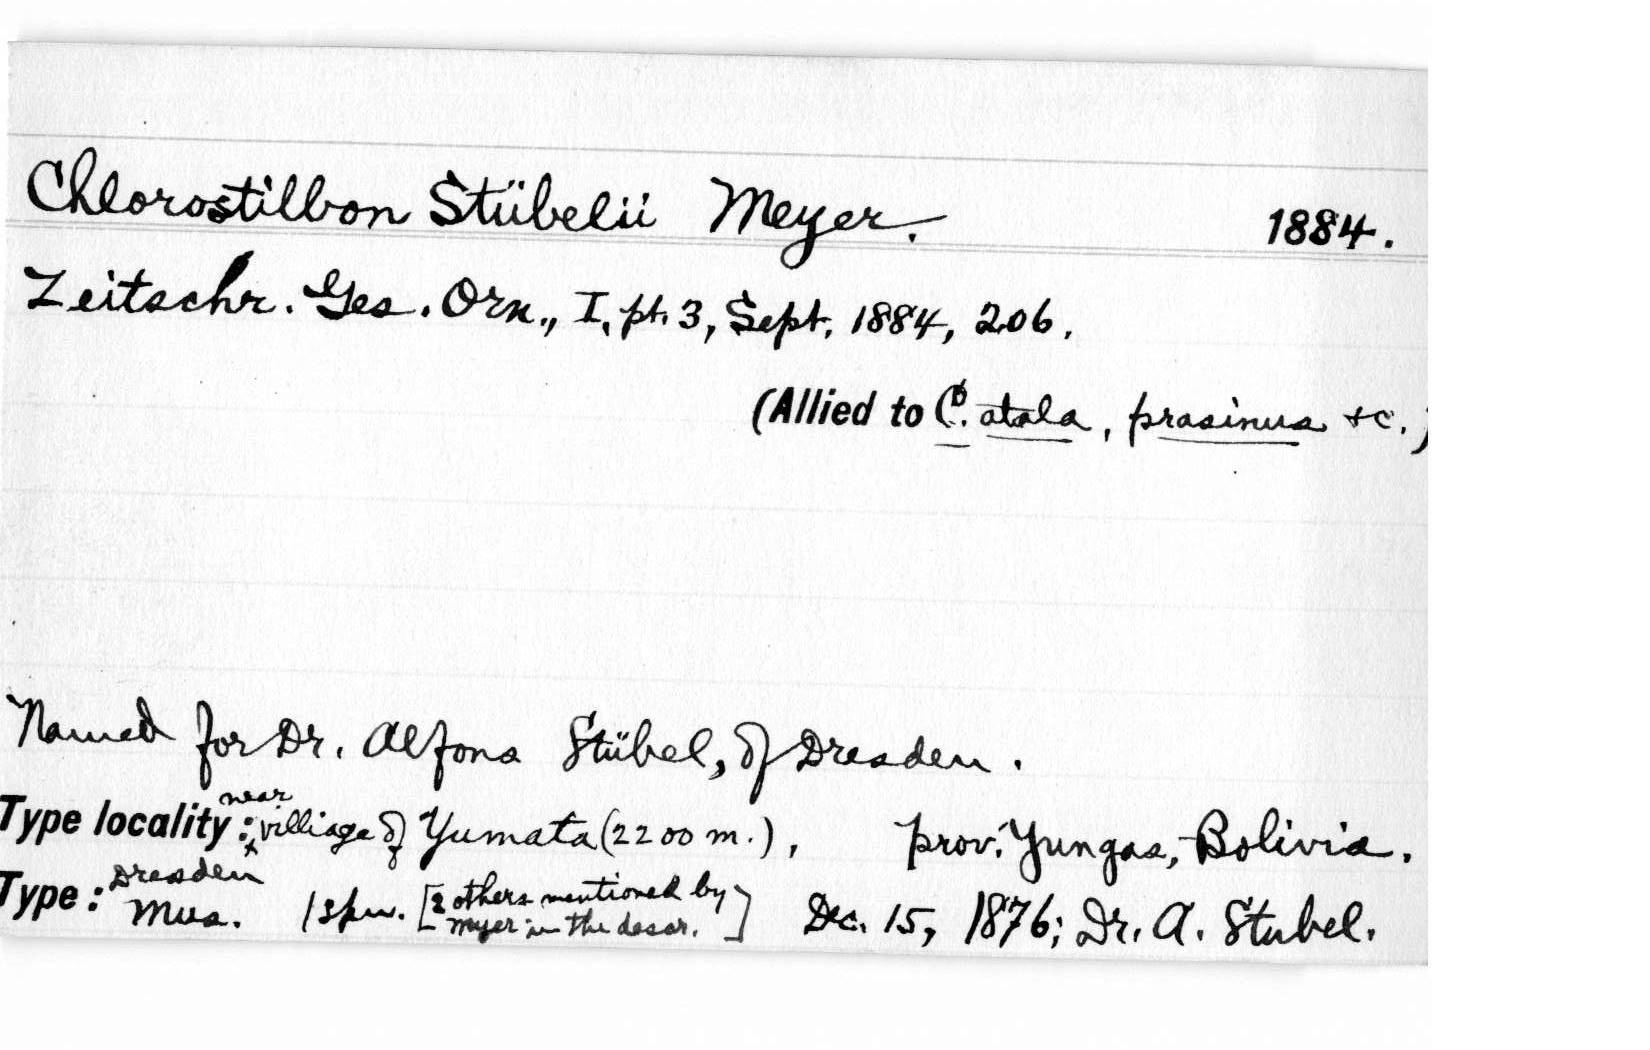 Chlorostilbon Stübelii Meyer. 1884.
Zeitschr. Ges. Orn., I, pt. 3, Sept. 1884, 206.
(Allied to C. atala, prasinus &c.)
Named for Dr. Alfons Stübel, of Dresden.
Type locality: near villiage of Yumata (2200 m.), prov. Yungas, Bolivia.
Type: Dresden Mus. 1 spm. [2 others mentioned by Meyer in the descr.] Dec. 15, 1876; Dr. A. Stubel.